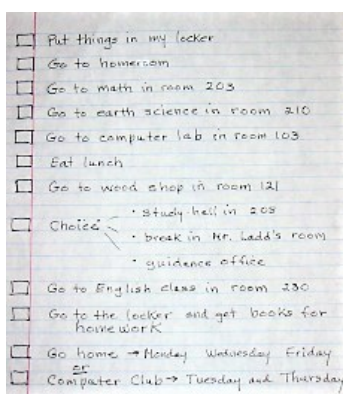 Put things in my locker
Go to homeroom
Go to math in room 203
Go to earth science in room 210
Go to computer lab in room 103
Eat lunch
Go to wood shop in room 121
Choice
• study hall in 203
• break in Mr. Ladd's room
• guidance office
Go to English class in room 230
Go to the locker and get books for
homework
Go home → Monday Wednesday Friday
or
Computer Club → Tuesday and Thursday